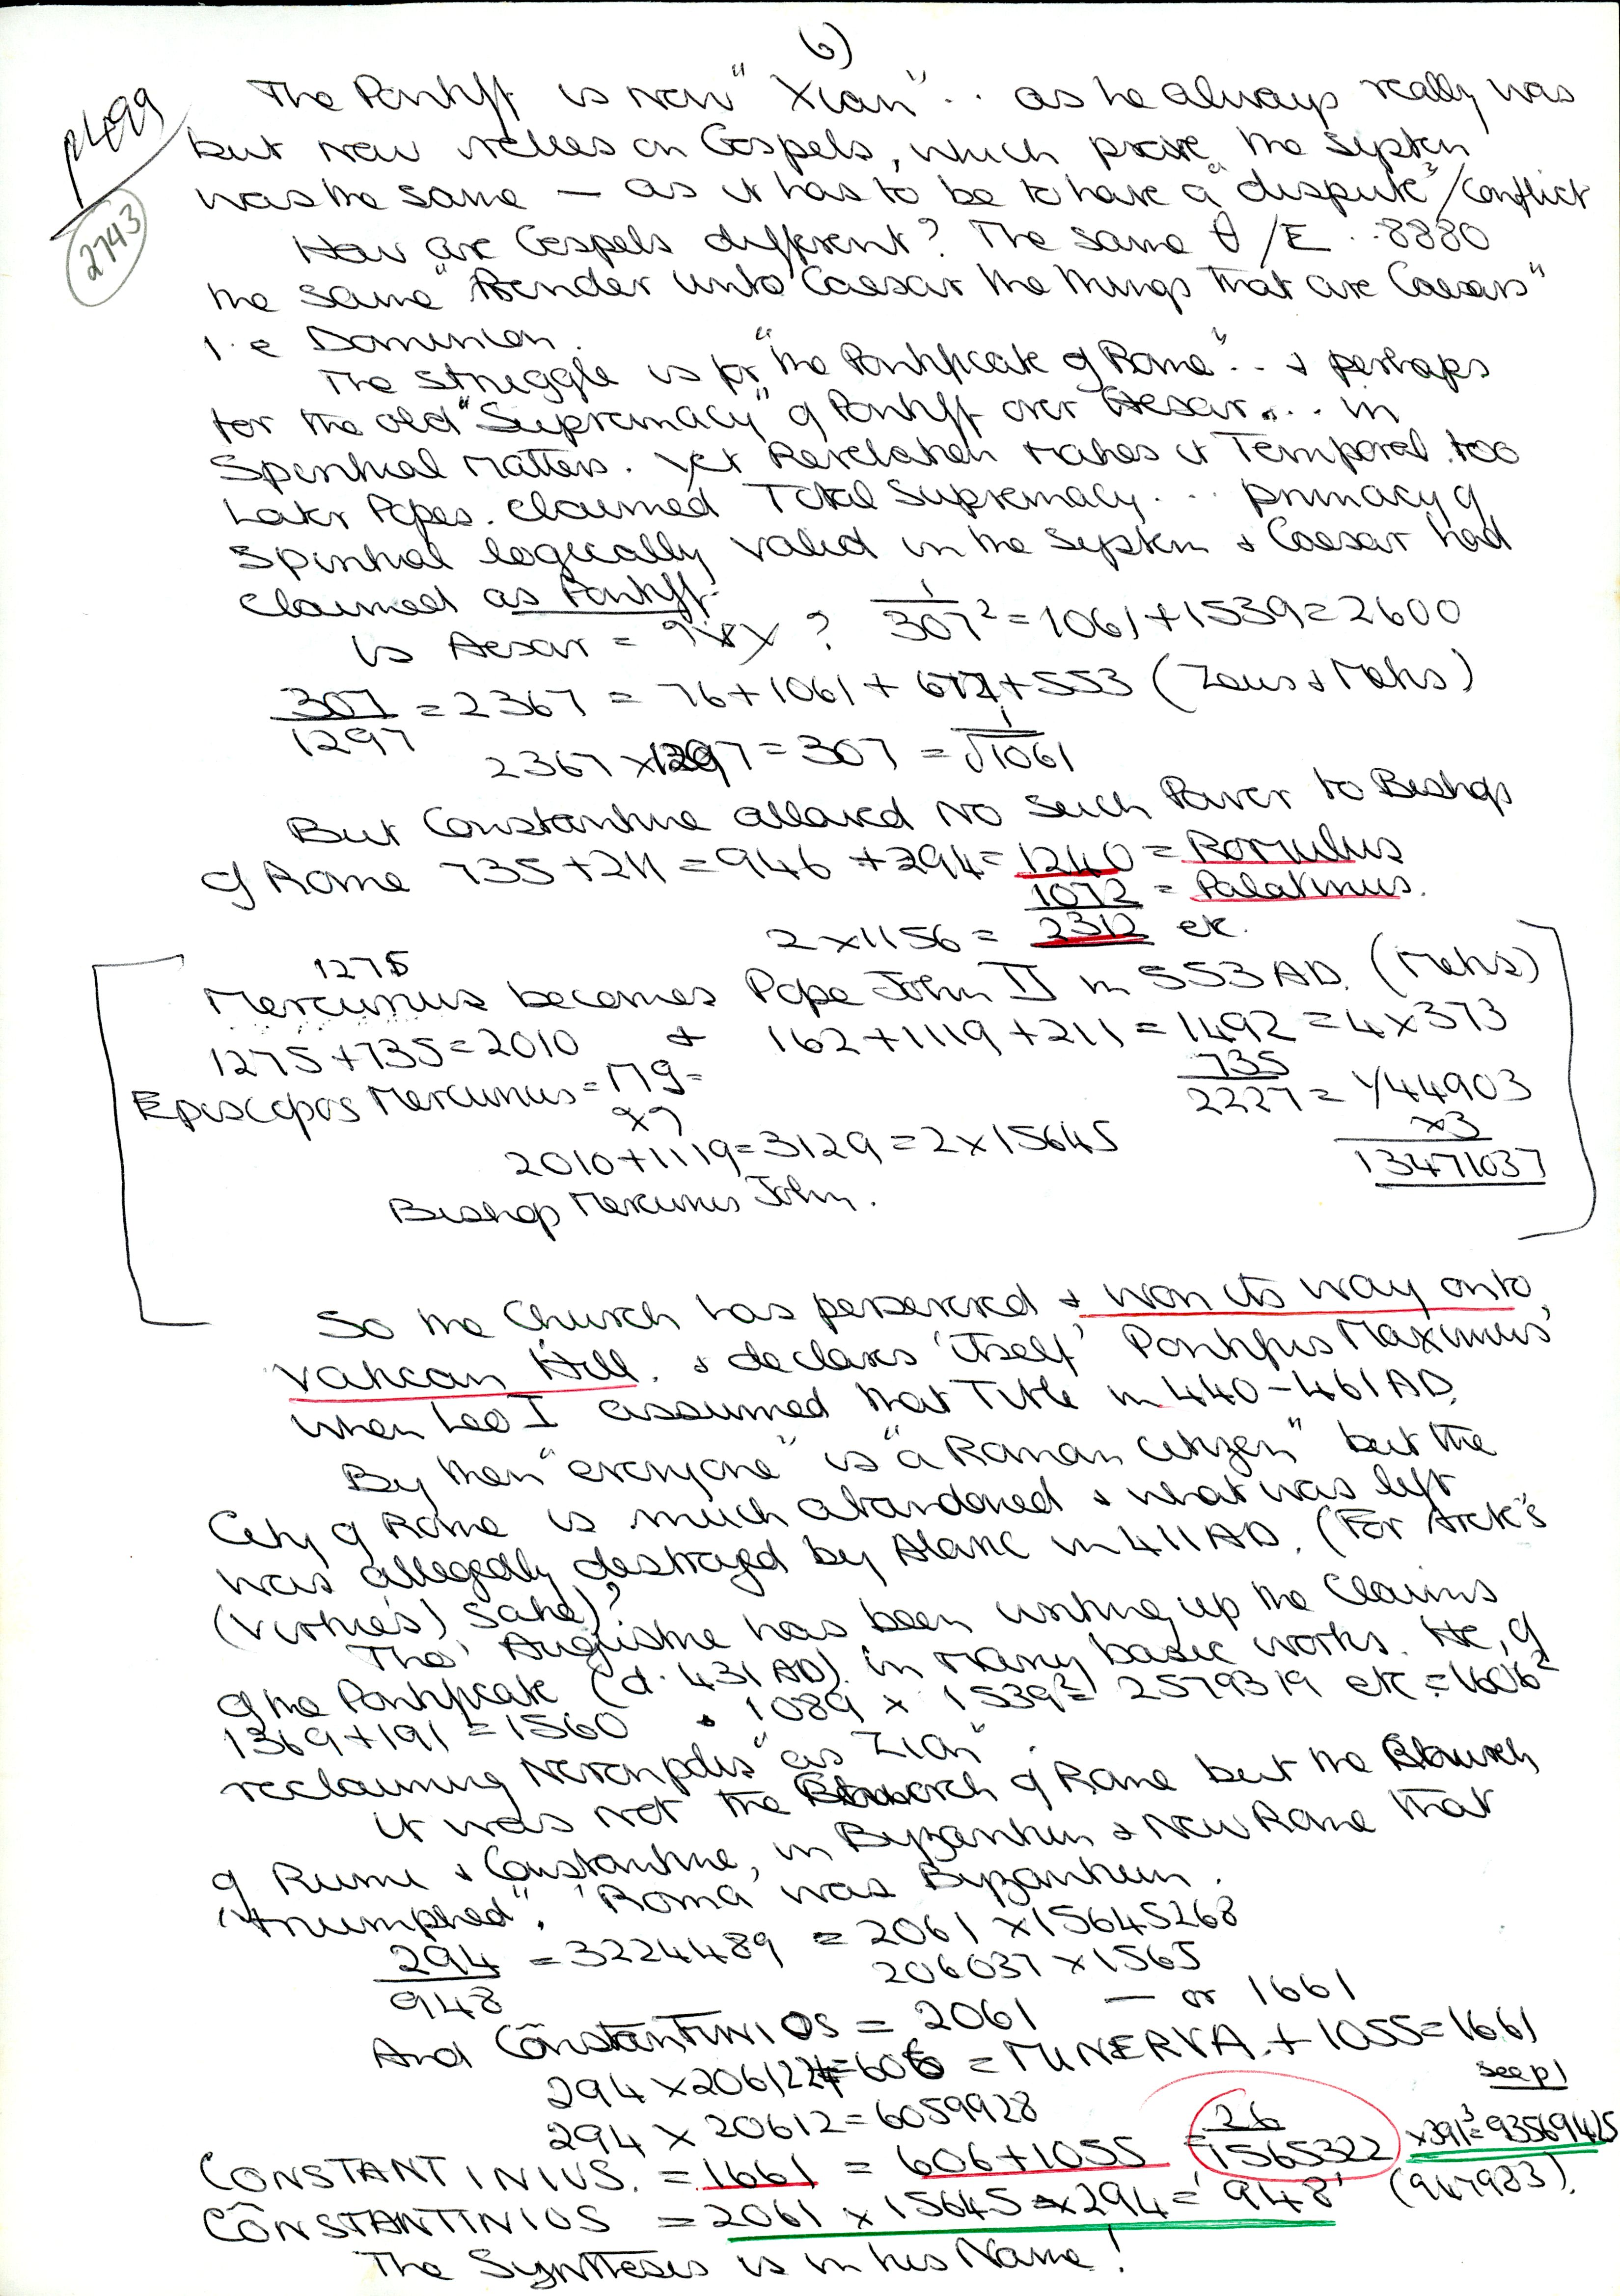 6)
p499
2743
The Pontiff is now "Xian".. as he always really was
but now relies on Gospels, which prove the system
was the same — as it has to be to have a "dispute"/conflict
How are Gospels different? The same θ/E..8880
the same "Render unto Caesar the things that are Caesars"
i.e Dominion.
The struggle is for "the Pontificate of Rome".. & perhaps
for the old "Supremacy" of Pontiff over Aesar... in
Spiritual matters. Yet Revelation makes it Temporal too
Later Popes. claimed Total Supremacy... primacy of
Spiritual logically valid in the system & Caesar had
claimed as Pontiff.
Is Aesar = ? 1/307² = 1061 + 1539 = 2600
307/1297 = 2367 = 76 + 1061 + 677 + 553 (Zeus & Metis)
2367 x 1297 = 307 = 1/√1061
But Constantine allowed no such Power to Bishops
of Rome 735 + 211 = 946 + 294 = 1240 = Romulus
1072 = Palatinus.
2 x 1156 = 2312 etc.
1275
Mercurius becomes Pope John II in 553 AD. (Metis)
1275 + 735 = 2010 & 162 + 1119 + 211 = 1492 = 4 x 373
735
Episcopos Mercurius = 2227 = 1/44903
x3
2010 + 1119 = 3129 = 2 x 15645 13471037
Bishop Mercurius John.
So the Church has persevered & won its way onto
Vatican Hill. & declares 'itself' Pontifus Maximus
when Leo I assumed that Title in 440 - 461 AD.
By then "everyone" is "a Roman citizen" but the
City of Rome is much abandoned & what was left
was allegedly destroyed by Alaric in 411 AD. (For Arete's
(Virtue's) sake)?
Tho' Augustine has been writing up the claims
of the Pontificate (d. 431 AD) in many basic works. He, of
1369 + 191 = 1560 . 1089 x 1539² = 2579319 etc = 1606²
reclaiming Neronpolis "as Zion".
It was not the Church of Rome but the Church
of Rume & Constantine, in Byzantium & New Rome that
"triumphed". 'Roma' was Byzantium.
294/948 = 3224489 = 2061 x 15645268
206037 x 1565
And CōnstanTINIOS = 2061 — or 1661
294 x 2061224 = 606 = MINERVA + 1055 = 1661
see p1
294 x 20612 = 6059928
CONSTANTINIUS. = 1661 = 606 + 1055 = 26/1565322 x 391³ = 93569425
CŌNSTANTINIOS = 2061 x 15645 x 294 = '948' (947983).
The Synthesis is in his Name!